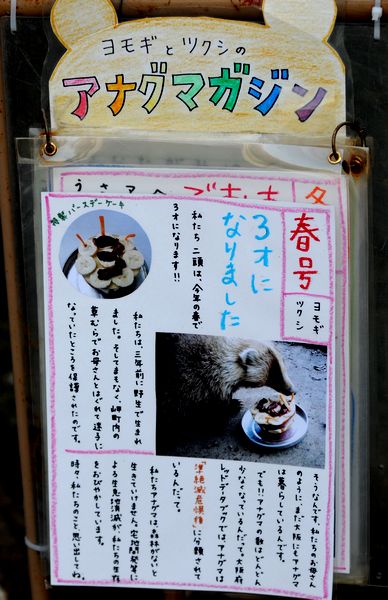 ヨモギとツクシの
アナグマガジン
冬
春号
ヨモギ
ツクシ
3才に
なりました
私たち二頭は、今年の春で
3才になります!!
特製バースデーケーキ
私たちは、三年前に野生で生まれ
ました。そしてまもなく、岬町内の
草むらでお母さんとはぐれて迷子に
なっていたところを保護されたのです。
そうなんです。私たちのお母さん
のように、まだ大阪にもアナグマ
は暮らしているんです。
でも!!アナグマの数はどんどん
少なくなっているんだって。大阪府
レッドデータブックでは、アナグマは
「準絶滅危惧種」に分類されて
いるんだって。
私たちアナグマは、森林がないと
生きていけません。宅地開発等に
よる生息地消滅が私たちの生存
をおびやかしています。
時々、私たちのこと、思い出してね。